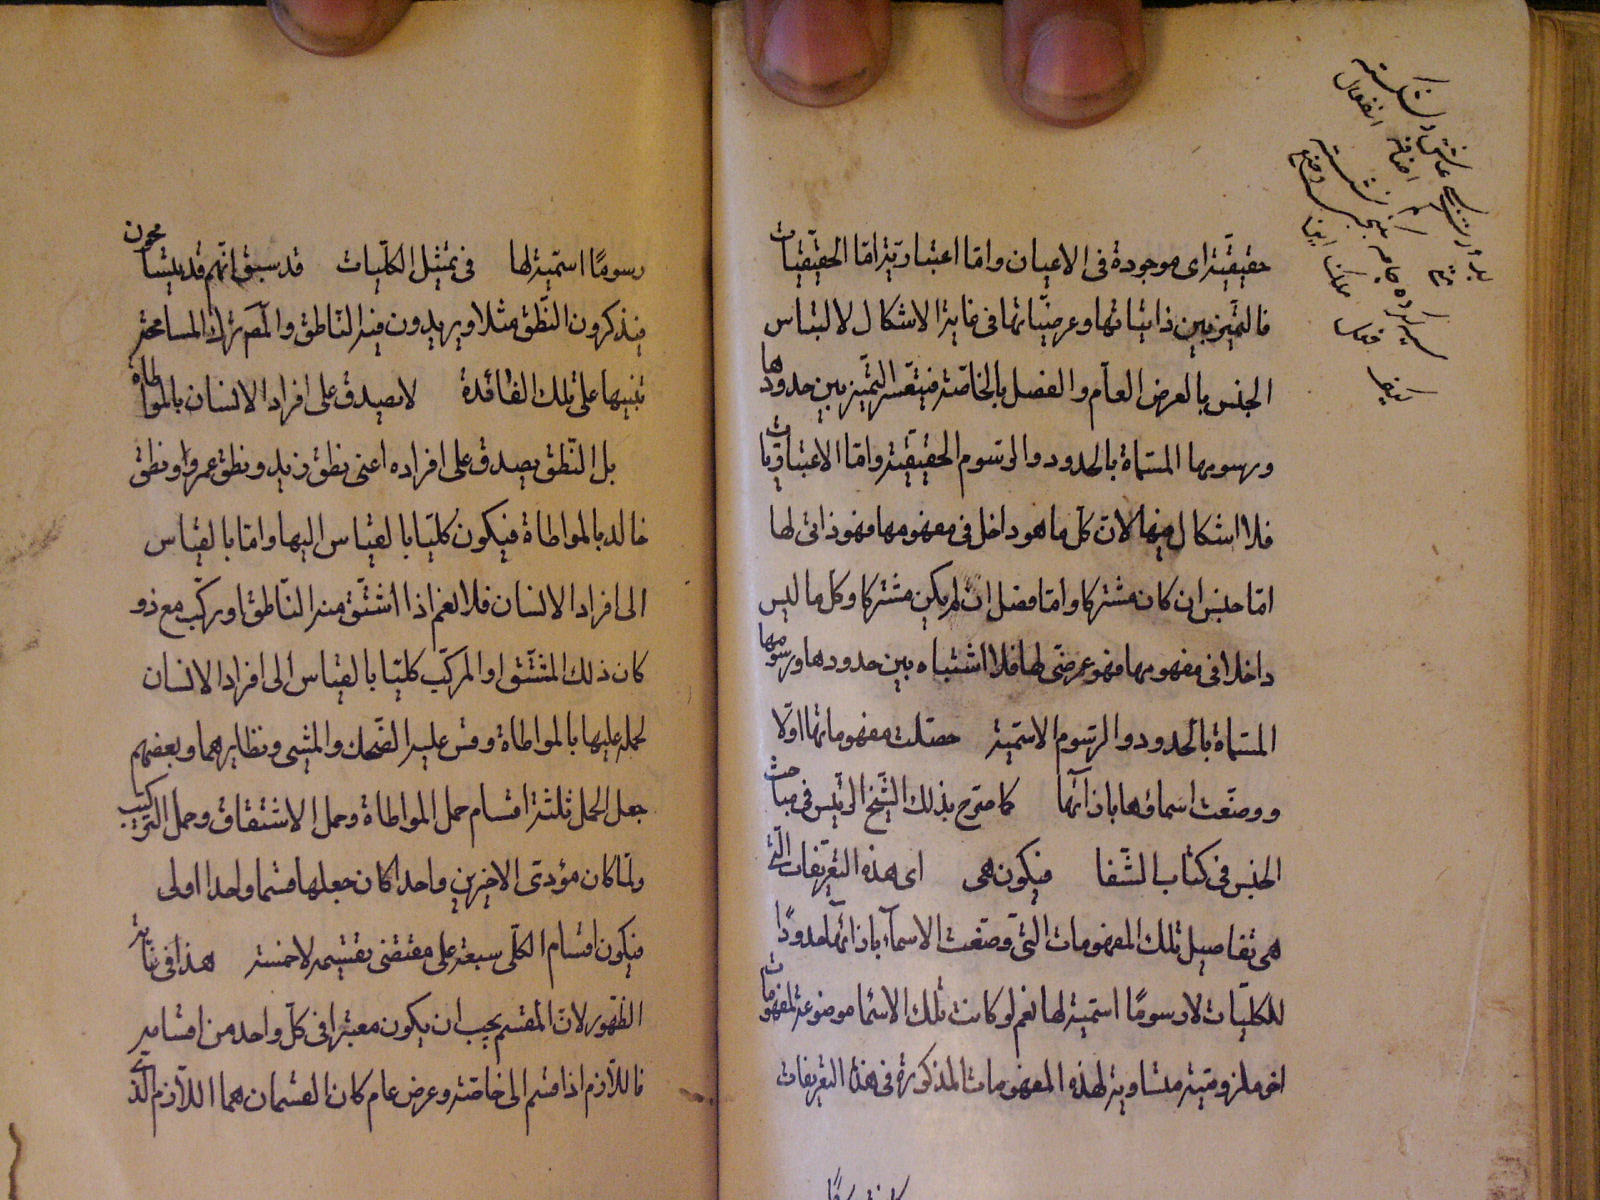 حقيقيّة اى موجودة فى الاعيان وامّا اعتباريّة امّا الحقيقيّات
فالتميّز بين ذاتيّاتها وعرضيّاتها فى غاية الاشكال لالتباس
الجنس بالعرض العامّ والفصل بالخاصّة فيتعّسر التميّز بين حدودها
ورسومها المسمّاة بالحدود والرسوم الحقيقيّة وامّا الاعتباريّات
فلا اشكال فيها لانّ كلّ ما هو داخل فى مفهومها فهو ذاتى لها
امّا جنس ان كان مشتركا وامّا فصل ان لم يكن مشتركا وكل ما ليس
داخلا فى مفهومها فهو عرضىّ لها فلا اشتباه بين حدودها ورسومها
المسمّاة بالحدود والرسوم الاسميّة حصّلت مفهوماتها اوّلا
ووضعت اسماؤها بازائها كما صرّح بذلك الشيخ الرئيس فى مباحث
الجنس فى كتاب الشّفا فيكون هى اى هذه التعريفات الّتى
هى تفاصيل تلك المفهومات التى وضعت الاسمآء بازائها حدودًا
للكليّات لا رسومًا اسميّة لها نعم لو كانت تلك الاسما موضوعة لمفهومات
اخر ملزوميّة مساوية لهذه المفهومات المذكورة فى هذه التعريفات
رسومًا اسميّة لها فى تمثيل الكلّيات قد سبق انّهم قد يتسامحون
فيذكرون النّطق مثلا ويريدون منه النّاطق والمص ترك المسامحة
تنبيها على تلك الفائدة لا يصدق على افراد الانسان بالمواطاة
بل النّطق يصدق على افراده اعنى نطق زيد ونطق عمرو ونطق
خالد بالمواطاة فيكون كليّا بالقياس اليها وامّا بالقياس
الى افراد الانسان فلا نعم اذا اشتّق منه النّاطق او ركّب مع ذو
كان ذلك المشتّق او المركّب كليّا بالقياس الى افراد الانسان
لحمله عليها بالمواطاة وقس عليه الضّحك والمشى ونظايرهما وبعضهم
جعل الحمل ثلثة اقسام حمل المواطاة وحمل الاشتقاق وحمل التركيب
ولمّا كان مؤدّى الاخيرين واحدا كان جعلهما قسما واحدا اولى
فيكون اقسام الكلّى سبعة على مقتضى تقسيمه لا خمسة هذا فى غاية
الظّهور لانّ المقسم يجب ان يكون معتبرا فى كلّ واحد من اقسامه
فاللّازم اذا قسّم الى خاصّة وعرض عام كان القسمان هما اللّازم الّذى